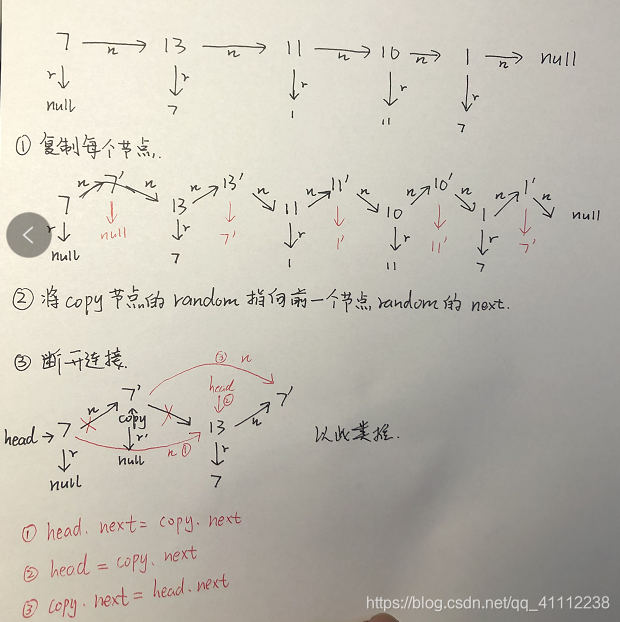 7 n 13 n 11 n 10 n 1 n null
r r r r r
null 7 1 11 7
① 复制每个节点.
n 7' n 13' n 11' n 10' n 1' n
7 n 13 n 11 n 10 n 1 null
r null r 7' r 1' r 11' r 7'
null 7 1 11 7
② 将copy节点的random指向前一个节点random的next.
③ 断开连接.
③ n
7' head ② 7'
n copy n
head → 7 r' 13 以此类推.
r null n ① r
null 7
① head. next = copy. next
② head = copy. next
③ copy. next = head. next
https://blog.csdn.net/qq_41112238